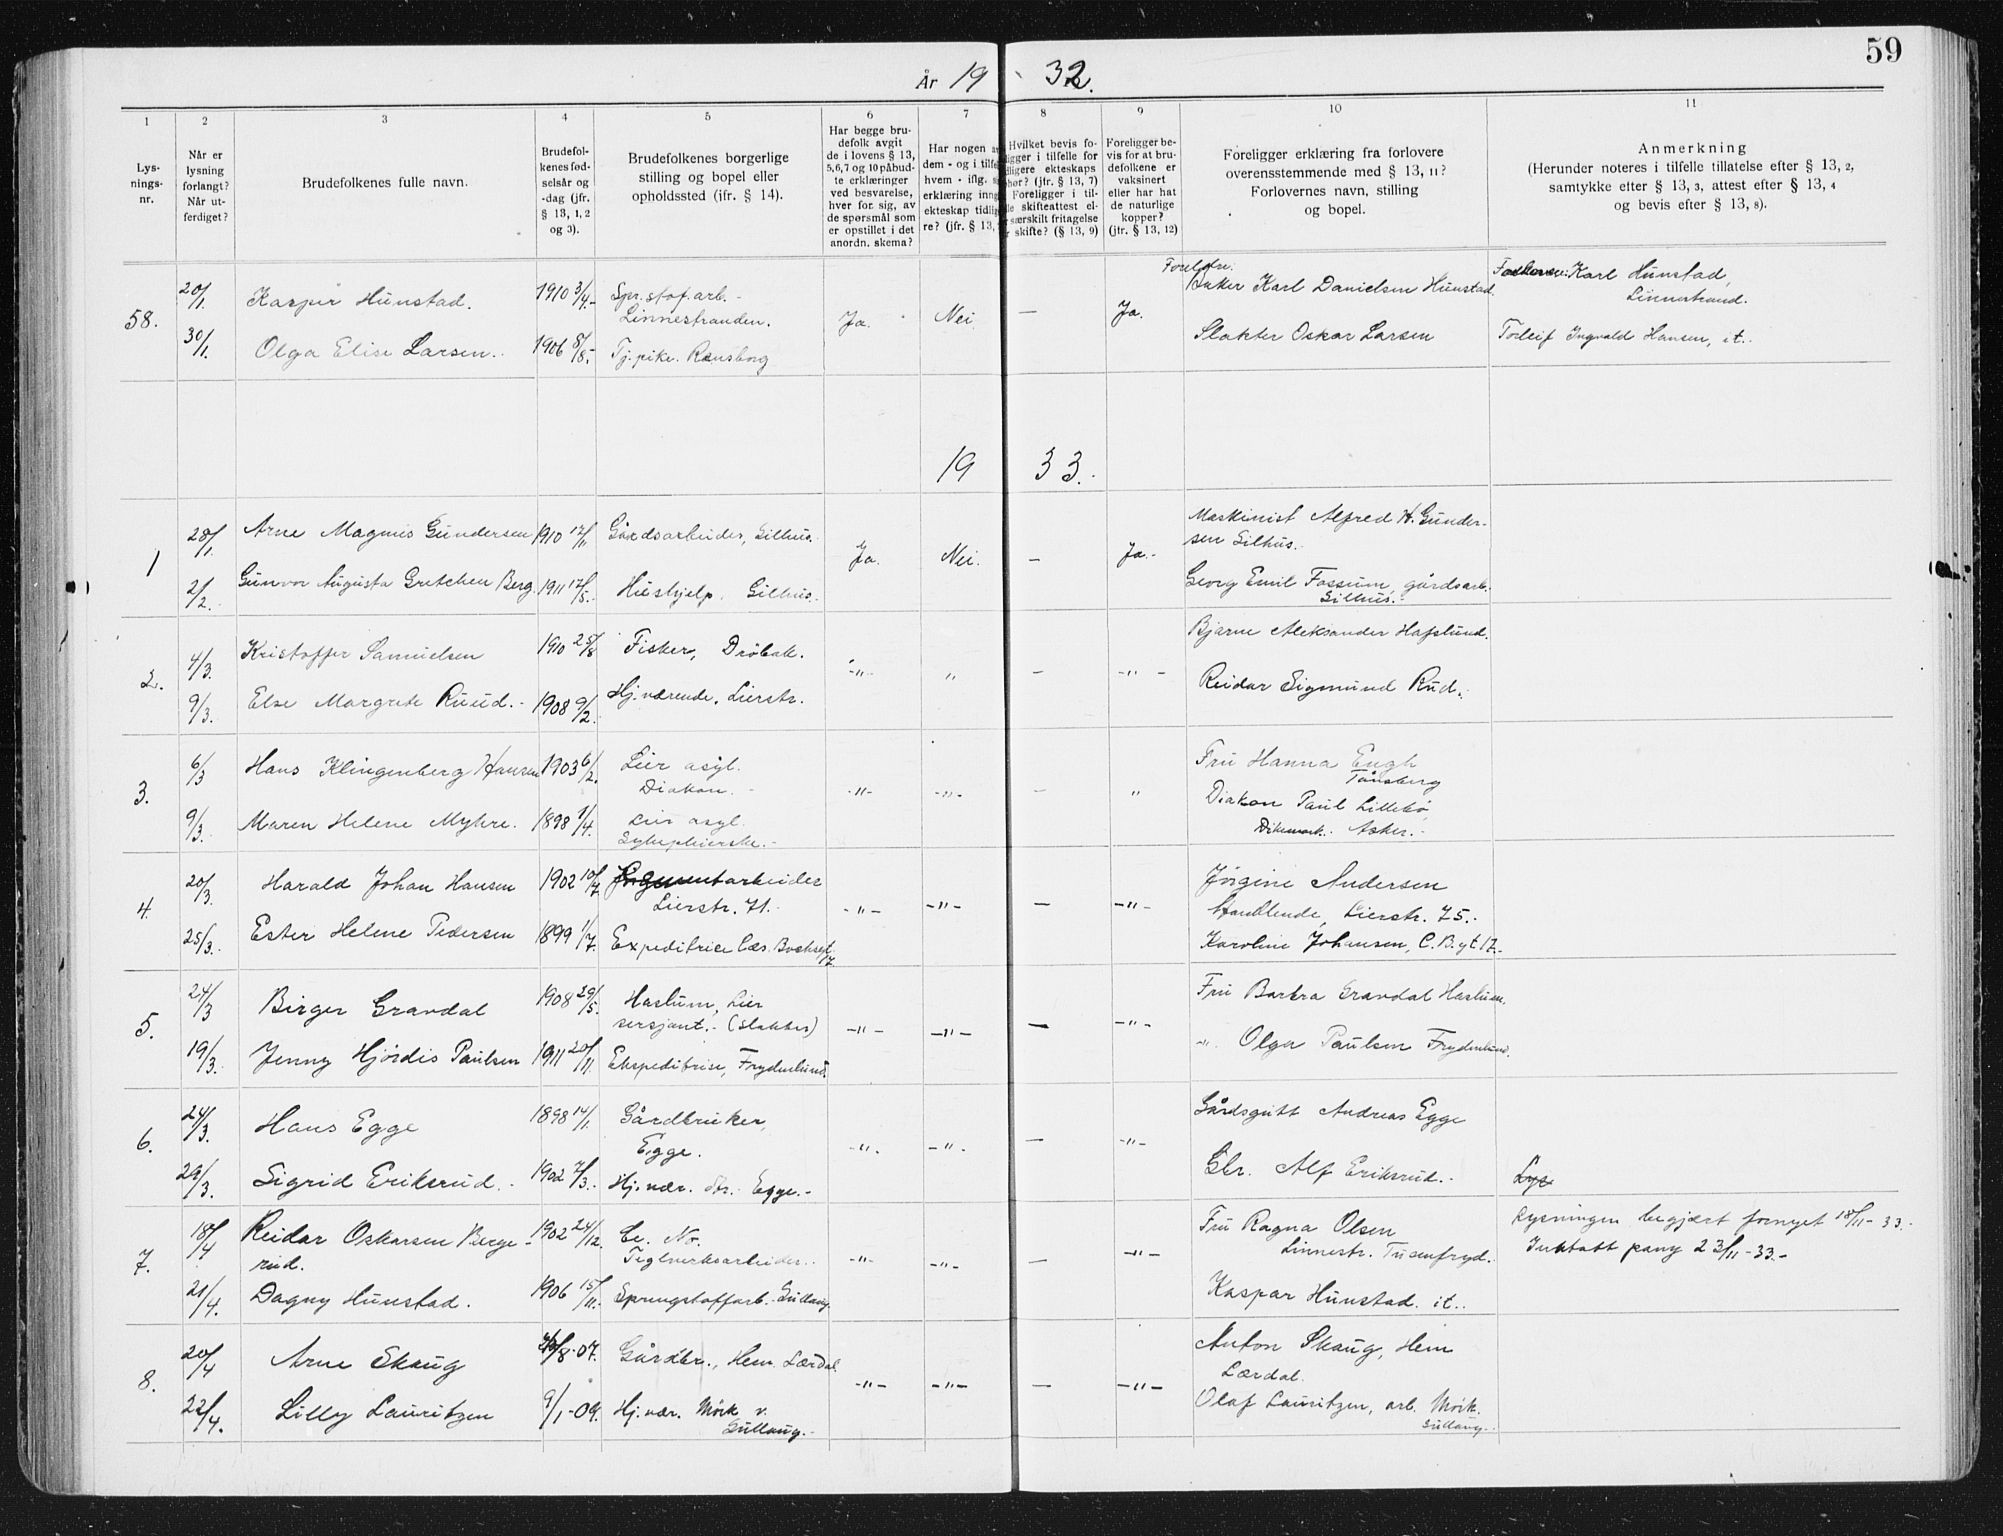 59
År 19 32.
1 2 3 4 5 6 7 8 9 10 11
Lysnings-nr.
Når er lysning forlangt? Når utferdiget?
Brudefolkenes fulle navn.
Brudefolkenes fødselsår og -dag (jfr. § 13, 1, 2 og 3).
Brudefolkenes borgerlige stilling og bopel eller opholdssted (jfr. § 14).
Har begge brudefolk avgit de i lovens § 13, 5, 6, 7 og 10 påbudte erklæringer ved besvarelse, hver for sig, av de spørsmål som er opstillet i det anordn. skema?
Har nogen av dem - og i tilfelle hvem - iflg. erklæring inngått ekteskap tidligere? (jfr. § 13,
Hvilket bevis foreligger i tilfelle for tidligere ekteskaps ophør? (jfr. § 13, 7) Foreligger i tilfelle skifteattest el. særskilt fritagelse for skifte? (§ 13, 9)
Foreligger bevis for at brudefolkene er vaksinert eller har hat de naturlige kopper? (jfr. § 13, 12)
Foreligger erklæring fra forlovere overensstemmende med § 13, 11? Forlovernes navn, stilling og bopel.
Anmerkning
(Herunder noteres i tilfelle tillatelse efter § 13, 2, samtykke efter § 13, 3, attest efter § 13, 4 og bevis efter § 13, 8).
58. 20/1. Kaspar Hunstad. 1910 3/4.- Spr.stof.arb.-
Linnestranden. Ja. Nei. — Ja.
Baker Karl Danielsen Hunstad. Karl Hunstad, Linnestrand.
30/1. Olga Elise Larsen. 1906 8/8.- Tj.pike. Ransborg
Slakter Oskar Larsen Torleif Ingvald Hansen, it.
19 33.
1 28/1. Arne Magnus Gundersen 1910 17/11. Gårdsarbeider, Gilhus. Ja. Nei. — Ja.-
Maskinist Alfred H. Gundersen Gilhus.
2/2. Gunvor Augusta Gretchen Berg. 1911 17/5. Hushjelp. Gilhus.
Georg Emil Fossum, gårdsarb. Gilhus.
2. 4/3. Kristoffer Samuelsen 1910 25/8 Fisker, Drøbak. -"- " — -"-
Bjarne Aleksander Hafslund.
9/3. Else Margrete Ruud.- 1908 9/2. Hj.værende. Lierstr.
Reidar Sigmund Rud.
3. 6/3 Hans Klingenberg Hansen 1903 6/2. Lier asyl.
Diakon. -"- -"- — "
Fru Hanna Engh
Tønsberg
9/3. Maren Helene Myhre. 1898 1/4. Lier asyl.
Sykepleierske.-
Diakon Paul Lillebø,
Dikemark. Asker.-
4. 20/3. Harald Johan Hansen 1902 10/7. arbeider
Lierstr. 71. -"- -"- — -"-
Jørgine Andersen
Lierstr. 75.
25/3. Ester Helene Pedersen 1899 1/7. Expeditrice
Karoline Johansen, C.B.gt 17.
5. 24/3 Birger Gravdal 1908 29/5. Haslum, Lier
sersjant.- (Slakter) -"- -"- — -"-
Fru Barbra Gravdal Haslum.
19/3. Jenny Hjørdis Paulsen 1911 20/11. Ekspeditrise, Frydenlund.
-"- Olga Paulsen Frydenlund.
6. 24/3. Hans Egge 1898 14/1. Gårdbruker,
Egge. -"- -"- — -"-
Gårdsgutt Andreas Egge
29/3. Sigrid Eriksrud.- 1902 7/3.- Hj.vær. dtr. Egge.-
Gbr. Alf Eriksrud.- Lys
7. 18/4 Reidar Oskarsen Bergerud. 1902 24/12. Ce. No.
Teglverksarbeider. -"- -"- — -"-
Fru Ragna Olsen
Linnestr. Tusenfryd.
Lysningen begjært fornyet 18/11-33.-
21/4. Dagny Hunstad. 1906 15/11.- Sprengstoffarb. Gullaug.
Kaspar Hunstad. it.
23/11-33.-
8. 20/4 Arne Skaug /8-07. Gårdbr., Hem. Lærdal. -"- -"- — -"-
Anton Skaug, Hem
Lærdal.
22/4. Lilly Lauritzen 9/1-09. Hj.vær. Mørk v. Gullaug.-
Olaf Lauritzen, arb. Mørk. Gullaug.